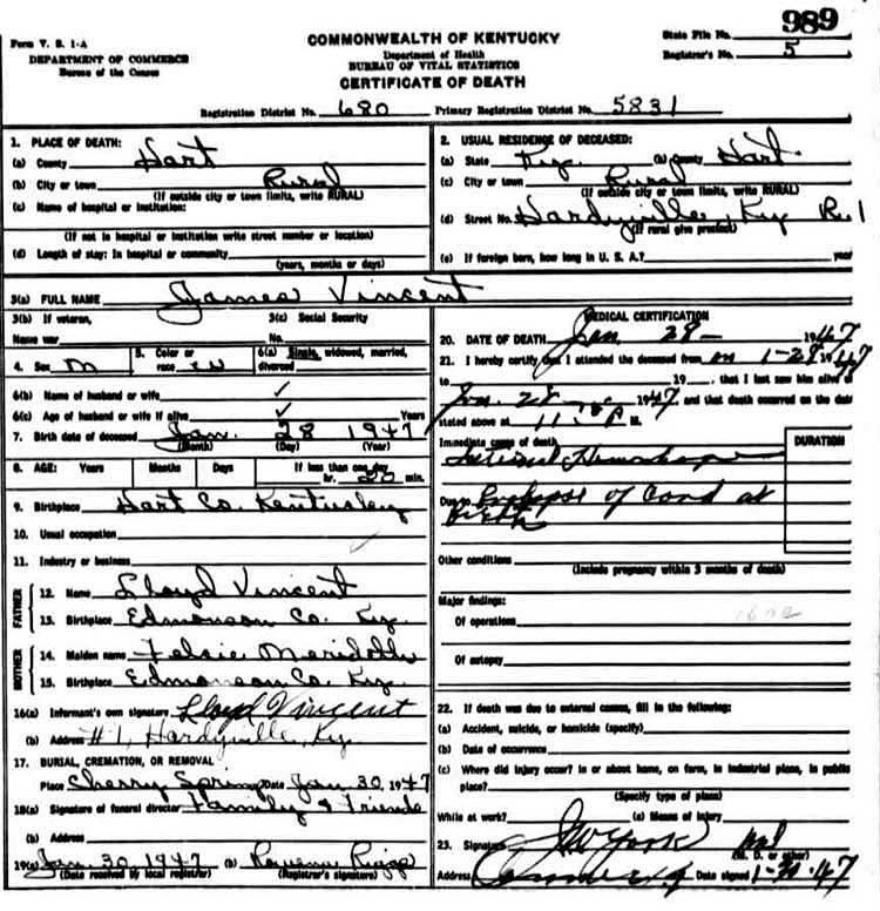 989
Form V. S. 1-A
DEPARTMENT OF COMMERCE
Bureau of the Census
COMMONWEALTH OF KENTUCKY
Department of Health
BUREAU OF VITAL STATISTICS
CERTIFICATE OF DEATH
State File No.
Registrar's No. 5
Registration District No. 680 Primary Registration District No. 5831
1. PLACE OF DEATH:
(a) County Hart
(b) City or town Rural
(If outside city or town limits, write RURAL)
(c) Name of hospital or institution:
(If not in hospital or institution write street number or location)
(d) Length of stay: In hospital or community
(years, months or days)
2. USUAL RESIDENCE OF DECEASED:
(a) State Ky. (b) County Hart
(c) City or town Rural
(If outside city or town limits, write RURAL)
(d) Street No. Hardyville, Ky R. 1
(If rural give precinct)
(e) If foreign born, how long in U. S. A.? year
3(a) FULL NAME James Vincent
3(b) If veteran,
Name war
3(c) Social Security
No.
4. Sex M
5. Color or
race W
6(a) Single, widowed, married,
divorced
6(b) Name of husband or wife ✓
6(c) Age of husband or wife if alive ✓ Years
7. Birth date of deceased Jan. 28 1947
(Month) (Day) (Year)
8. AGE: Years Months Days If less than one day
hr. 20 min.
9. Birthplace Hart Co. Kentucky
10. Usual occupation
11. Industry or business
FATHER
12. Name Lloyd Vincent
13. Birthplace Edmonson Co. Ky.
MOTHER
14. Maiden name
15. Birthplace Edmonson Co. Ky.
16(a) Informant's own signature Lloyd Vincent
(b) Address #1, Hardyville, Ky.
17. BURIAL, CREMATION, OR REMOVAL
Place Cherry Spring Date Jan 30, 1947
18(a) Signature of funeral director Family & Friends
(b) Address
19(a) Jan. 30, 1947 (b)
(Date received by local registrar) (Registrar's signature)
MEDICAL CERTIFICATION
20. DATE OF DEATH Jan. 28 1947
21. I hereby certify that I attended the deceased from on 1-28 1947
to 19 , that I last saw him alive on
Jan. 28 1947, and that death occurred on the date
stated above at 11 P M.
Immediate cause of death DURATION
Internal Hemorrhage
Due to Prolapse of Cord at
Birth
Other conditions
(Include pregnancy within 3 months of death)
Major findings:
Of operations
Of autopsy
22. If death was due to external causes, fill in the following:
(a) Accident, suicide, or homicide (specify)
(b) Date of occurrence
(c) Where did injury occur? In or about home, on farm, in industrial place, in public
place?
(Specify type of place)
While at work? (e) Means of injury
23. Signature York MD
(M. D. or other)
Address Date signed 1-30-47